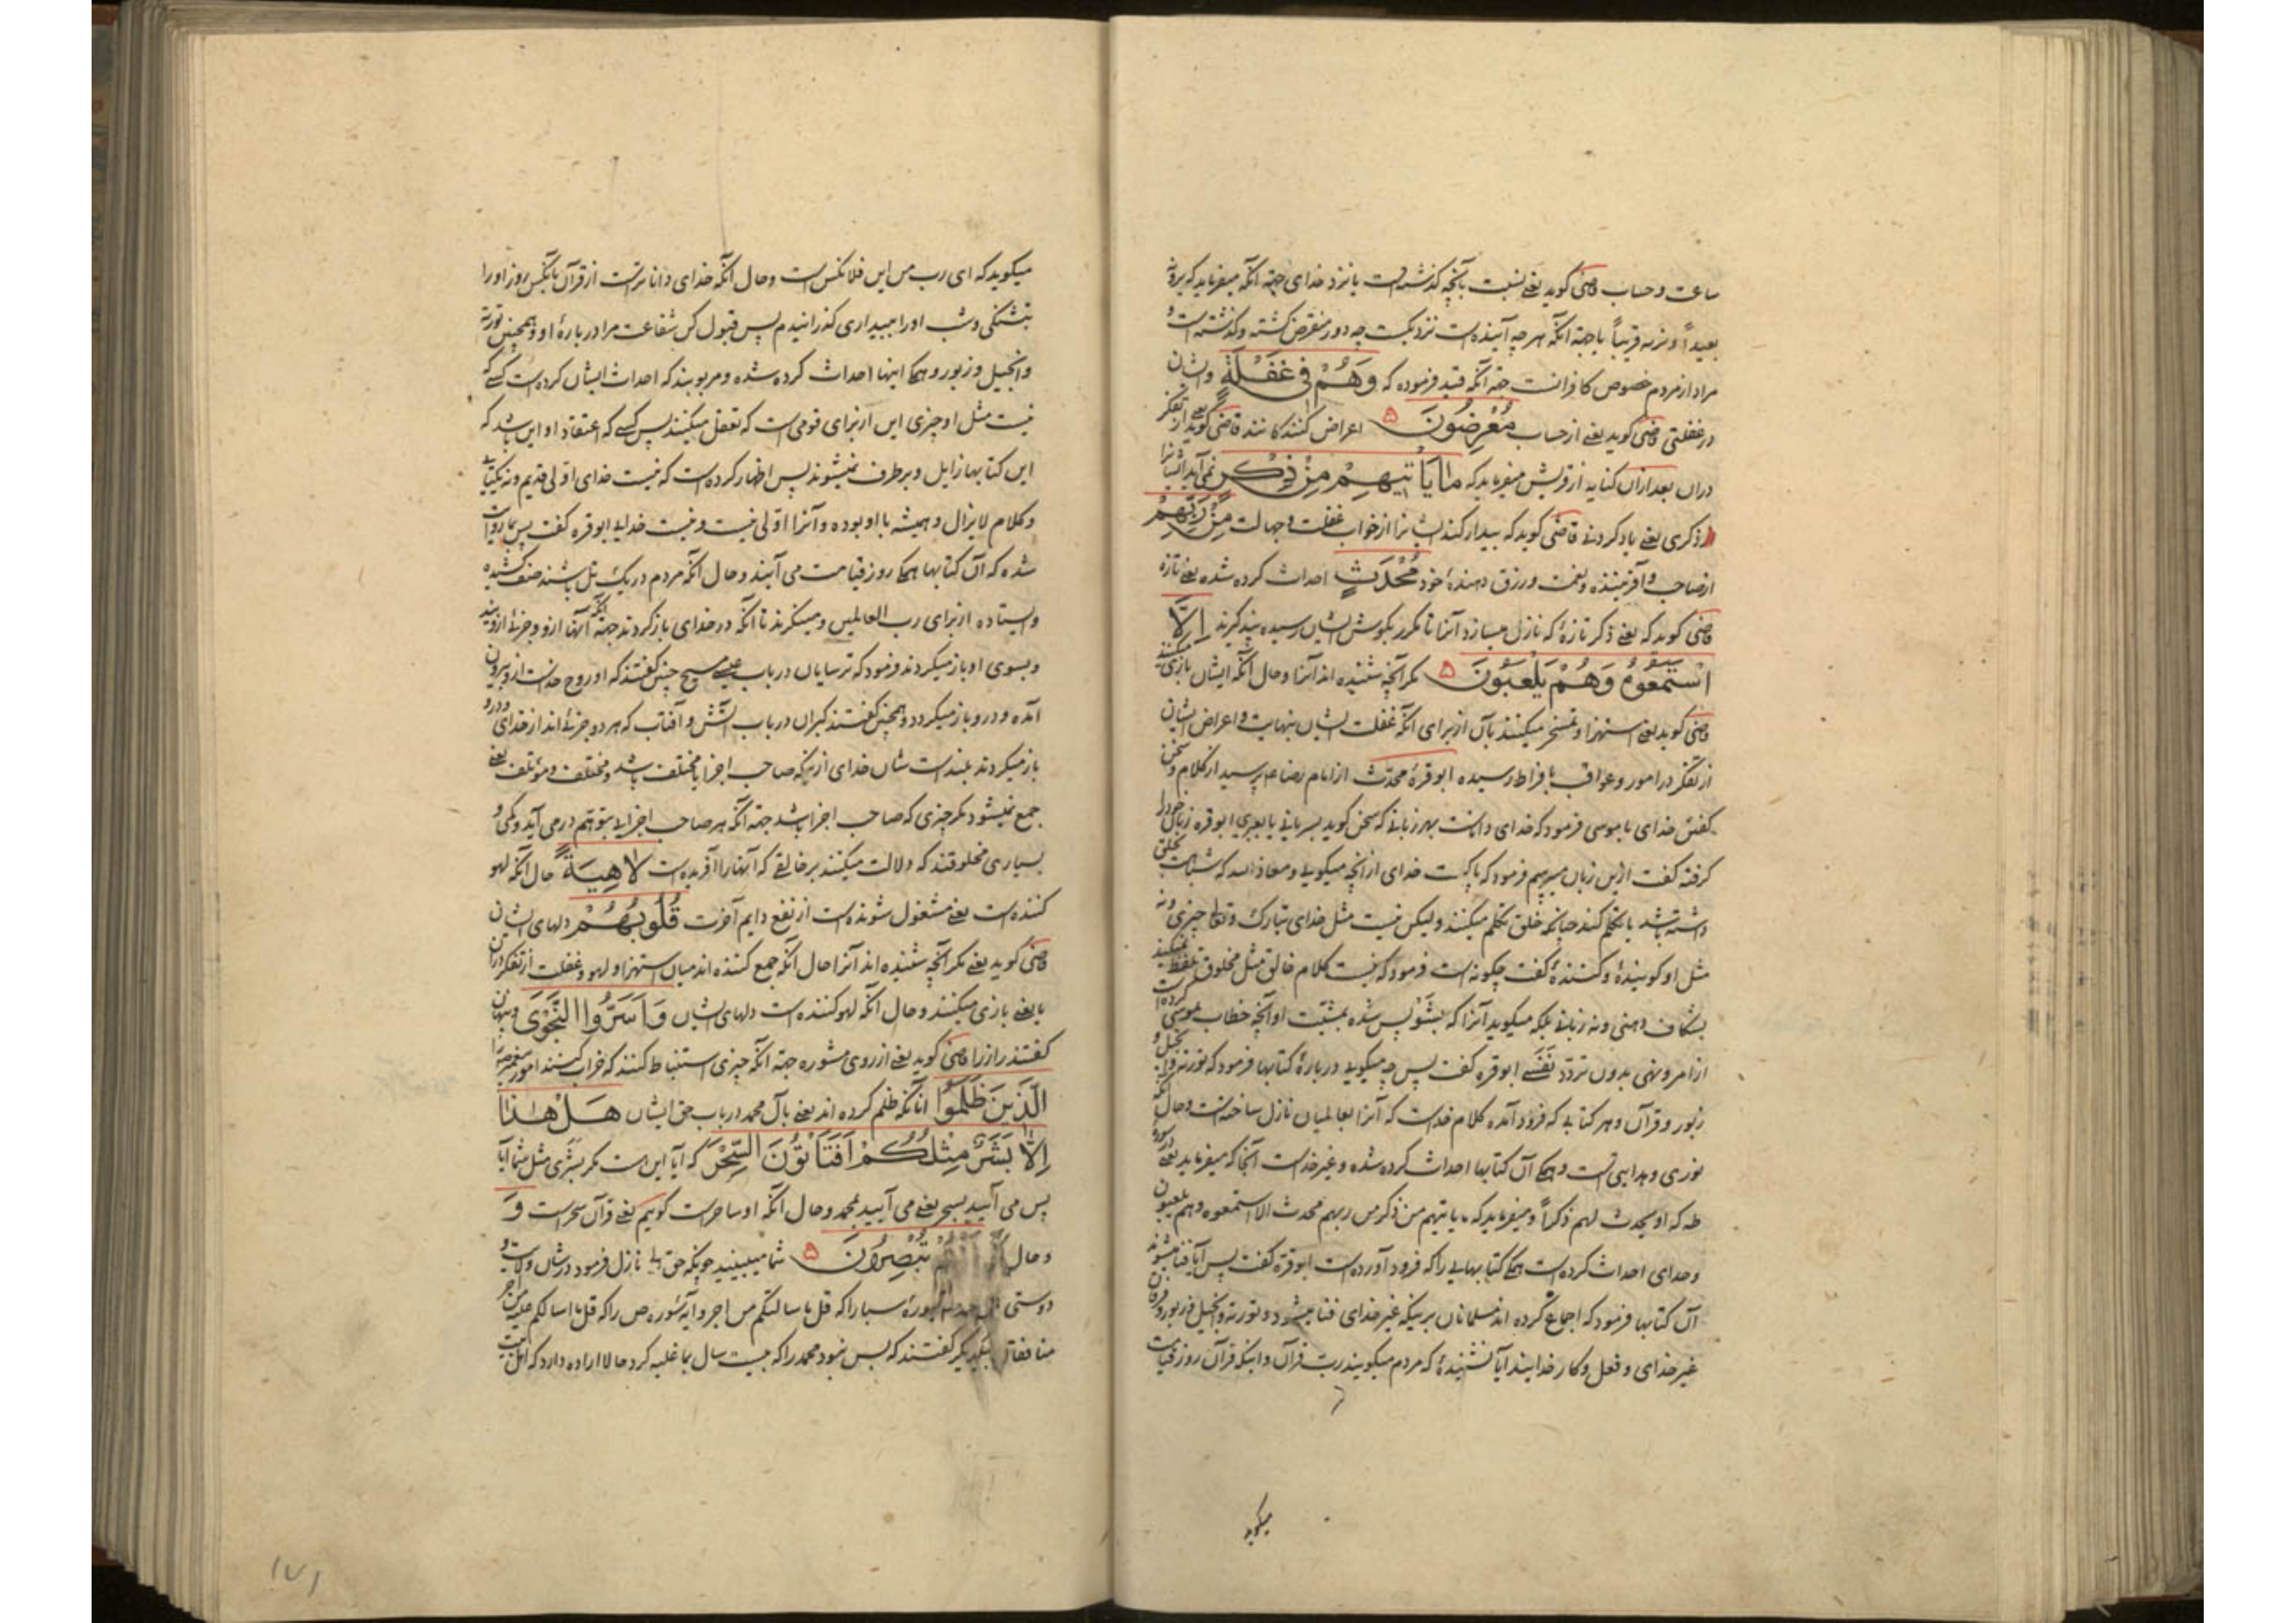 ساعت و حساب قاضی کوید یعنی نسبت بآنچه کذشته است یا نزد خدای جهة آنکه میفرماید که یرونه
بعیداً و نریه قریباً یا جهة آنکه هر چه آینده است نزدیکست چه دور منقرض کشته و کذشته است و
مراد از مردم خصوص کافرانست جهة آنکه قید فرموده که وَهُمْ فِی غَفْلَةٍ و ایشان
در غفلتی قاضی کوید یعنی از حساب مُعْرِضُونَ ۵ اعراض کنندکانند قاضی کوید یعنی از تفکر
دران بعد ازان کنایه از قریش میفرماید که مَا یَأْتِیهِمْ مِنْ ذِکْرٍ نمی آید ایشانرا
ذکری یعنی یاد کردنی قاضی کوید که بیدار کند ایشانرا از خواب غفلت و جهالت مِنْ رَبِّهِمْ
از صاحب و آفریننده و نعمت و رزق دهندهٔ خود مُحْدَثٍ احداث کرده شده یعنی تازه
قاضی کوید که یعنی ذکر تازهٔ که نازل میسازد آنرا تا مکرر بکوش ایشان رسیده پند کیرند اِلَّا
اسْتَمَعُوهُ وَهُمْ یَلْعَبُونَ ۵ مکر آنچه شنیده اند آنرا و حال آنکه ایشان بازی میکنند
قاضی کوید یعنی استهزا و تمسخر میکنند بآن از برای آنکه غفلت ایشان بنهایت و اعراض ایشان
از تفکر در امور و عواقب بافراط رسیده ابو قرهٔ محدث از امام رضا ع پرسید از کلام و سخن
کفتن خدای با موسی فرمود که خدای داناست بهر زبانی که سخن کوید بسریانی یا بعبری ابو قره زبان خود را
کرفته کفت ازین زبان میپرسیم فرمود که پاکست خدای از آنچه میکویی و معاذ الله که شباهت بخلق
داشته باشد یا تکلم کند چنانچه خلق تکلم میکنند ولیکن نیست مثل خدای تبارک و تعالی چیزی و نه
مثل او کویندهٔ و کنندهٔ کفت چکونه است فرمود که نیست کلام خالق مثل مخلوق تلفظ نمیکند
بشکاف دهنی و نه زبانی بلکه میکوید آنرا که بشو پس شده بمشیت او آنچه خطاب موسی کرده است
از امر و نهی بدون تردد نفسی ابو قره کفت پس چه میکویی دربارهٔ کتابها فرمود که توریة و انجیل و
زبور و قرآن و هر کتابی که فرود آمده کلام خداست که آنرا بعالمیان نازل ساخته است و حال آنکه
نوری و هدایتی است و همکی آن کتابها احداث کرده شده و غیر خداست آنجا که میفرماید یعنی سورهٔ
طه که او یحدث لهم ذکراً و میفرماید که ما یاتیهم من ذکر من ربهم محدث الا استمعوه و هم یلعبون
و خدای احداث کرده است همکی کتابهایی را که فرود آورده است ابو قره کفت پس آیا فنا میشوند
آن کتابها فرمود که اجماع کرده اند مسلمانان برینکه غیر خدای فنا میشود و توریة و انجیل و زبور و فرقان
غیر خدای و فعل و کار خدایند آیا نشنیدهٔ که مردم میکویند رب قرآن و اینکه قرآن روز قیامت
میکوید
میکوید که ای رب من این فلانکس است و حال آنکه خدای داناترست از قرآن بآنکس روز او را
بتشنکی و شب او را ببیداری کذرانیدم پس قبول کن شفاعت مرا دربارهٔ او و همچنین توریة
و انجیل و زبور و همکی اینها احداث کرده شده و مربوبند که احداث ایشان کرده است کسی که
نیست مثل او چیزی این از برای قومی است که تعقل میکنند پس کسی که اعتقاد او این باشد که
این کتابها زایل و برطرف نمیشوند پس اظهار کرده است که نیست خدای اولی قدیم و نه یکتایی
و کلام لایزال و همیشه با او بوده و آنرا اولی نیست و نیست خدایی ابو قره کفت پس بما روایت
شده که آن کتابها همکی روز قیامت می آیند و حال آنکه مردم در یک تل باشند صف کشیده
و ایستاده از برای رب العالمین و مینکرند تا آنکه در خدای باز کردند جهة آنکه آنها ازو و جزئی ازویند
و بسوی او باز میکردند فرمود که ترسایان در باب عیسی مسیح چنین کفتند که او روح خداست ازو بیرون
آمده و درو باز میکردد و همچنین کفتند کبران در باب آتش و آفتاب که هر دو جزئی اند از خدای و درو
باز میکردند بلندست شان خدای ازینکه صاحب اجزا یا مختلف باشد و مختلف و مؤتلف یعنی
جمع نمیشود مکر چیزی که صاحب اجزا باشد جهة آنکه هر صاحب اجزایی بتوهم درمی آید و کمی و
بسیاری مخلوقند که دلالت میکنند بر خالقی که آنها را آفریده است لَاهِیَةً حال آنکه لهو
کننده است یعنی مشغول شونده است از نفع دایم آخرت قُلُوبُهُمْ دلهای ایشان
قاضی کوید یعنی مکر آنچه شنیده اند آنرا حال آنکه جمع کننده اند میان استهزا و لهو و غفلت از تفکر دران
یا یعنی بازی میکنند و حال آنکه لهو کننده است دلهای ایشان وَاَسَرُّوا النَّجْوَی و پنهان
کفتند راز را قاضی کوید یعنی از روی مشوره جهة آنکه چیزی استنباط کنند که خراب کنند امور پیغمبر را
الَّذِینَ ظَلَمُوا آنانکه ظلم کرده اند یعنی بآل محمد در باب حق ایشان هَلْ هٰذَا
اِلَّا بَشَرٌ مِثْلُکُمْ اَفَتَأْتُونَ السِّحْرَ که آیا این است مکر بشری مثل شما آیا
پس می آیید بسحر یعنی می آیید بمحمد و حال آنکه او ساحرست کوییم یعنی قرآن سحر است وَ
و حال تُبْصِرُونَ ۵ شما میبینید چونکه حق تعالی نازل فرمود در شان ولایت و
دوستی سورهٔ سبا را که قل ما سالتکم من اجر و آیهٔ سوره ص را که قل ما اسالکم علیه من اجر
منافقان بیکدیکر کفتند که بس نبود محمد را که بیست سال بما غلبه کرد حالا اراده دارد که اهل بیت
۱۷۱